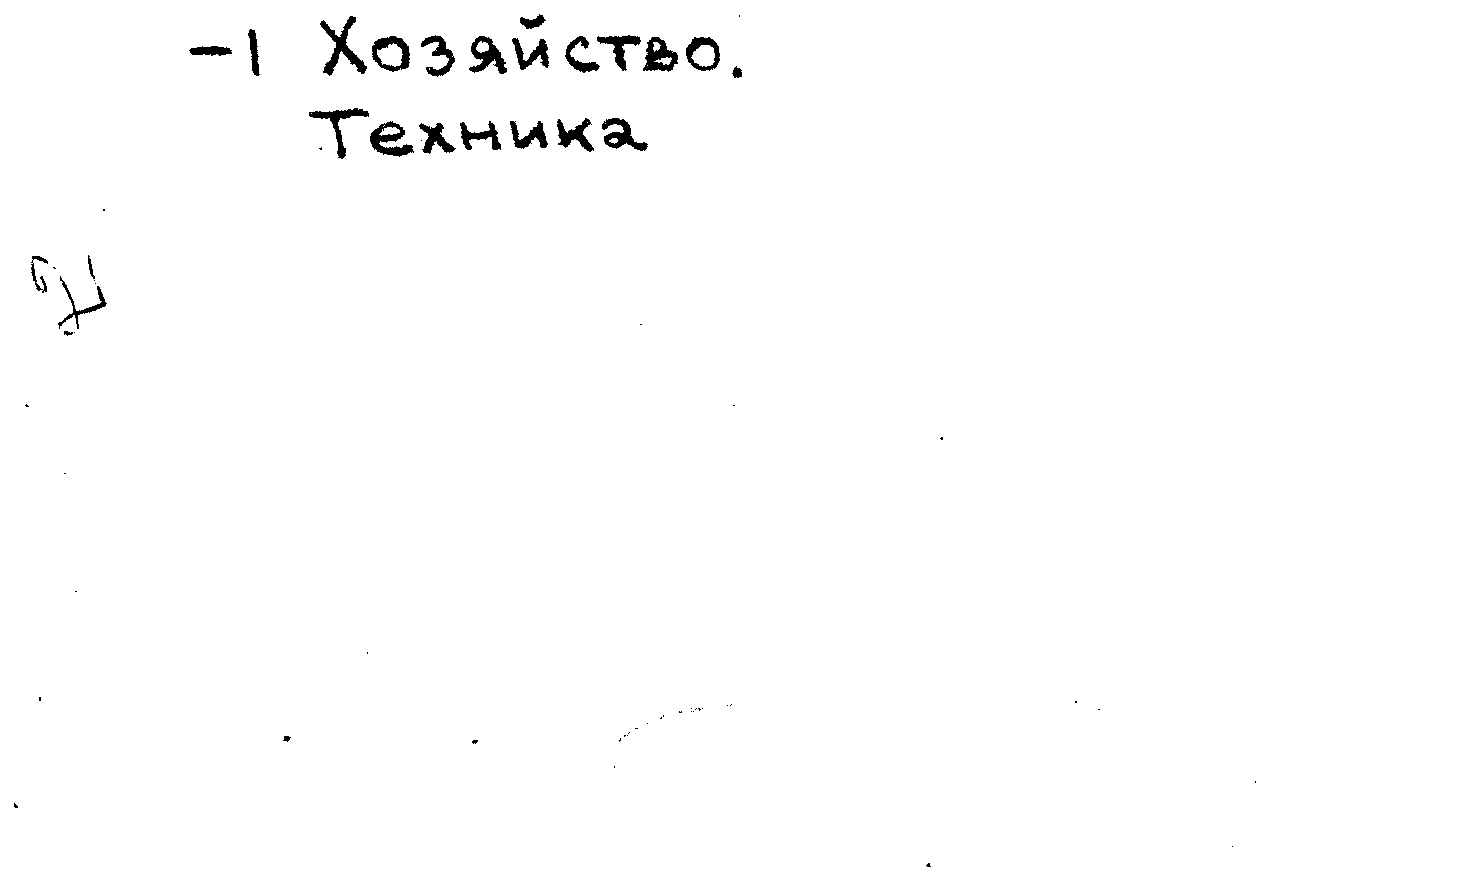 -1 Хозяйство.
Техника